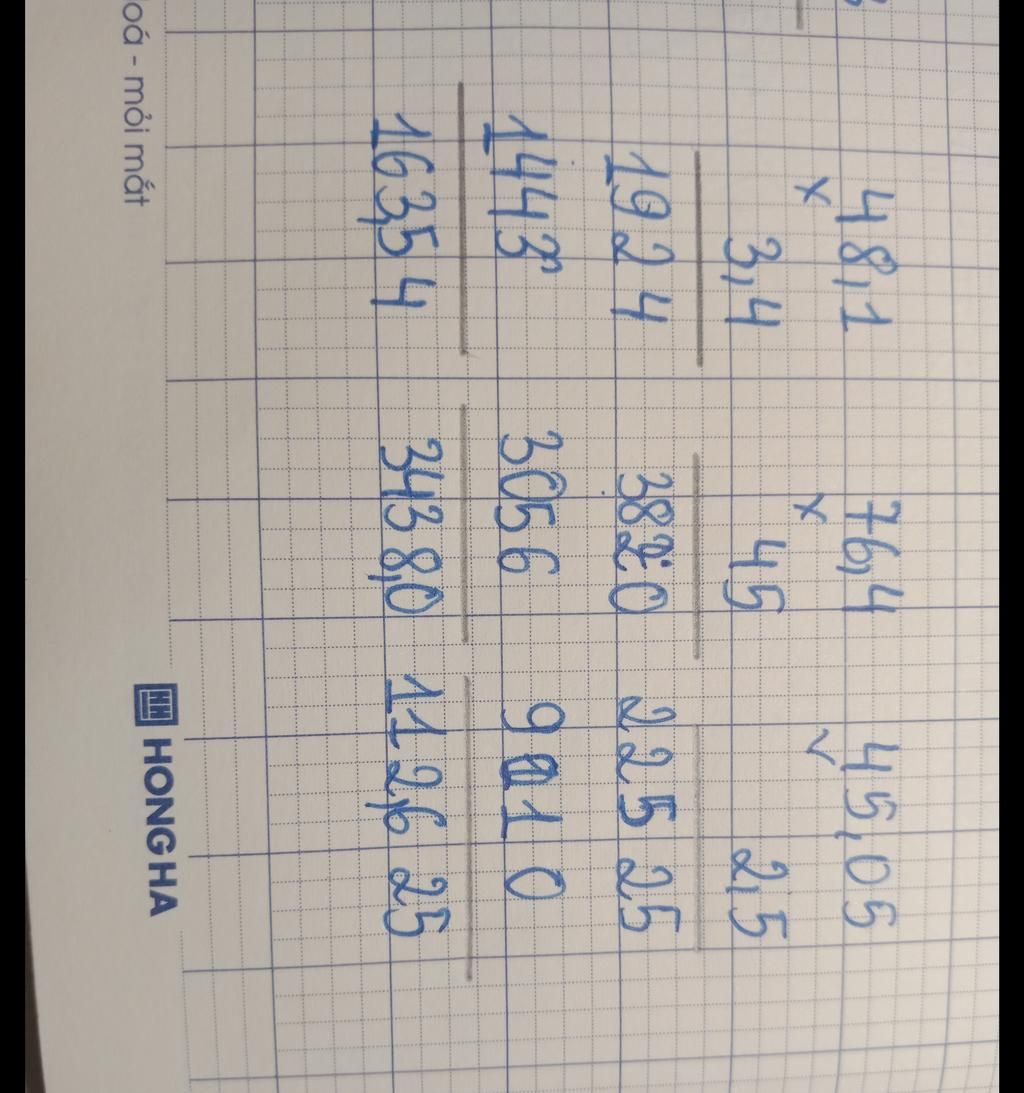 48,1
x
3,4
1924
1443
163,54
76,4
x
45
3820
3056
3438,0
45,05
2,5
22525
9010
112,625
mỏi mắt
HONG HA